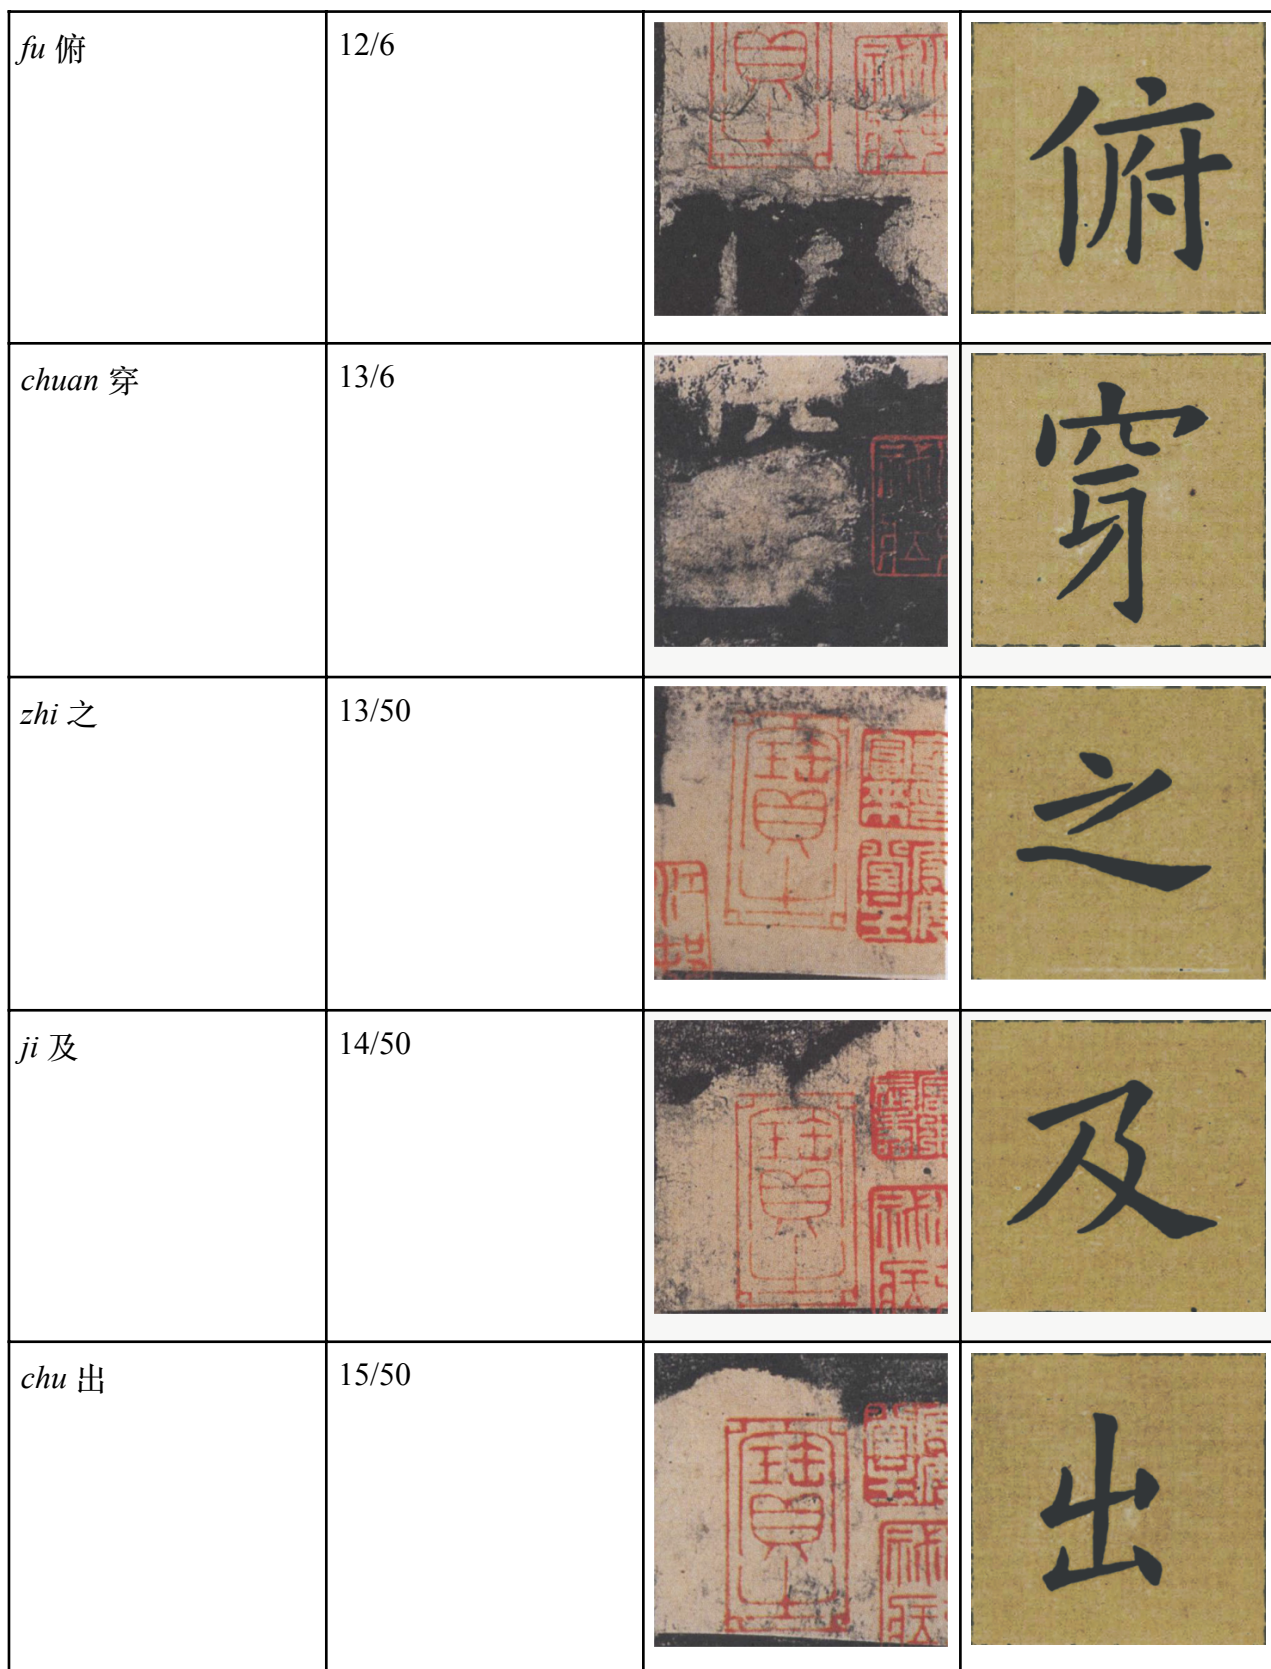 fu 俯
12/6
俯
chuan 穿
13/6
穿
zhi 之
13/50
寶
之
ji 及
14/50
寶
及
chu 出
15/50
寶
出